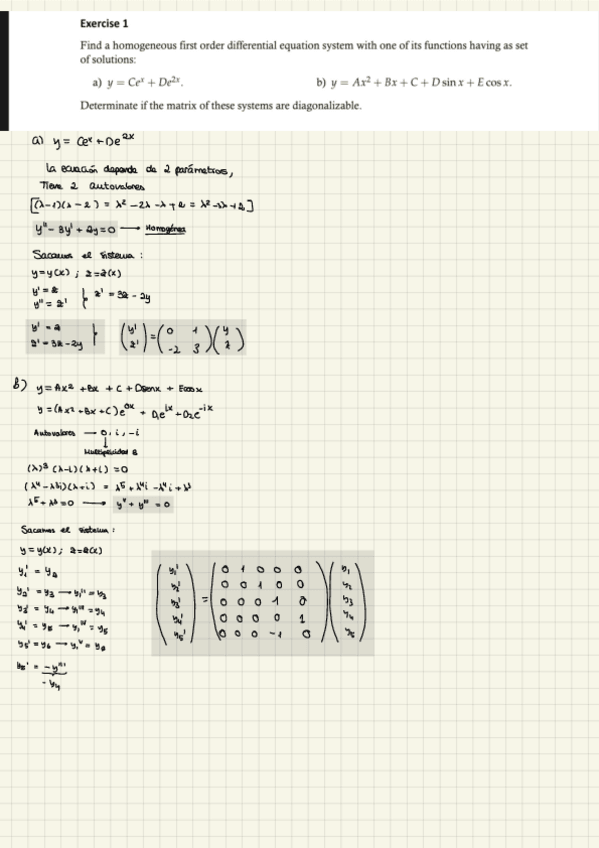 Exercise 1
Find a homogeneous first order differential equation system with one of its functions having as set
of solutions:
a) y = Ceˣ + De²ˣ.    b) y = Ax² + Bx + C + D sin x + E cos x.
Determinate if the matrix of these systems are diagonalizable.
a) y = Ceˣ + De²ˣ
La ecuación depende de 2 parámetros,
Tiene 2 autovalores
[(λ-1)(λ-2) = λ² - 2λ - λ + 2 = λ² - 3λ + 2]
y'' - 3y' + 2y = 0 → Homogénea
Sacamos el sistema:
y = y(x) ; z = z(x)
y' = z
y'' = z' } z' = 3z - 2y
y' = z
z' = 3z - 2y } (y' z') = (0 1 -2 3)(y z)
b) y = Ax² + Bx + C + Dsenx + Ecosx
y = (Ax² + Bx + C)e⁰ˣ + D₁eⁱˣ + D₂e⁻ⁱˣ
Autovalores → 0, i, -i
↓
Multiplicidad 3
(λ)³ (λ-i)(λ+i) = 0
(λ⁴ - λ³i)(λ+i) = λ⁵ + λ⁴i - λ⁴i + λ³
λ⁵ + λ³ = 0 → yᵛ + y''' = 0
Sacamos el sistema:
y = y(x) ; z = z(x)
y₁' = y₂
y₂' = y₃ → y₁'' = y₃
y₃' = y₄ → y₁''' = y₄
y₄' = y₅ → y₁ᴵⱽ = y₅
y₅' = y₆ → y₁ⱽ = y₆
y₅' = -y'''
-y₄
(y₁' y₂' y₃' y₄' y₅') = (0 1 0 0 0
0 0 1 0 0
0 0 0 1 0
0 0 0 0 1
0 0 0 -1 0) (y₁ y₂ y₃ y₄ y₅)